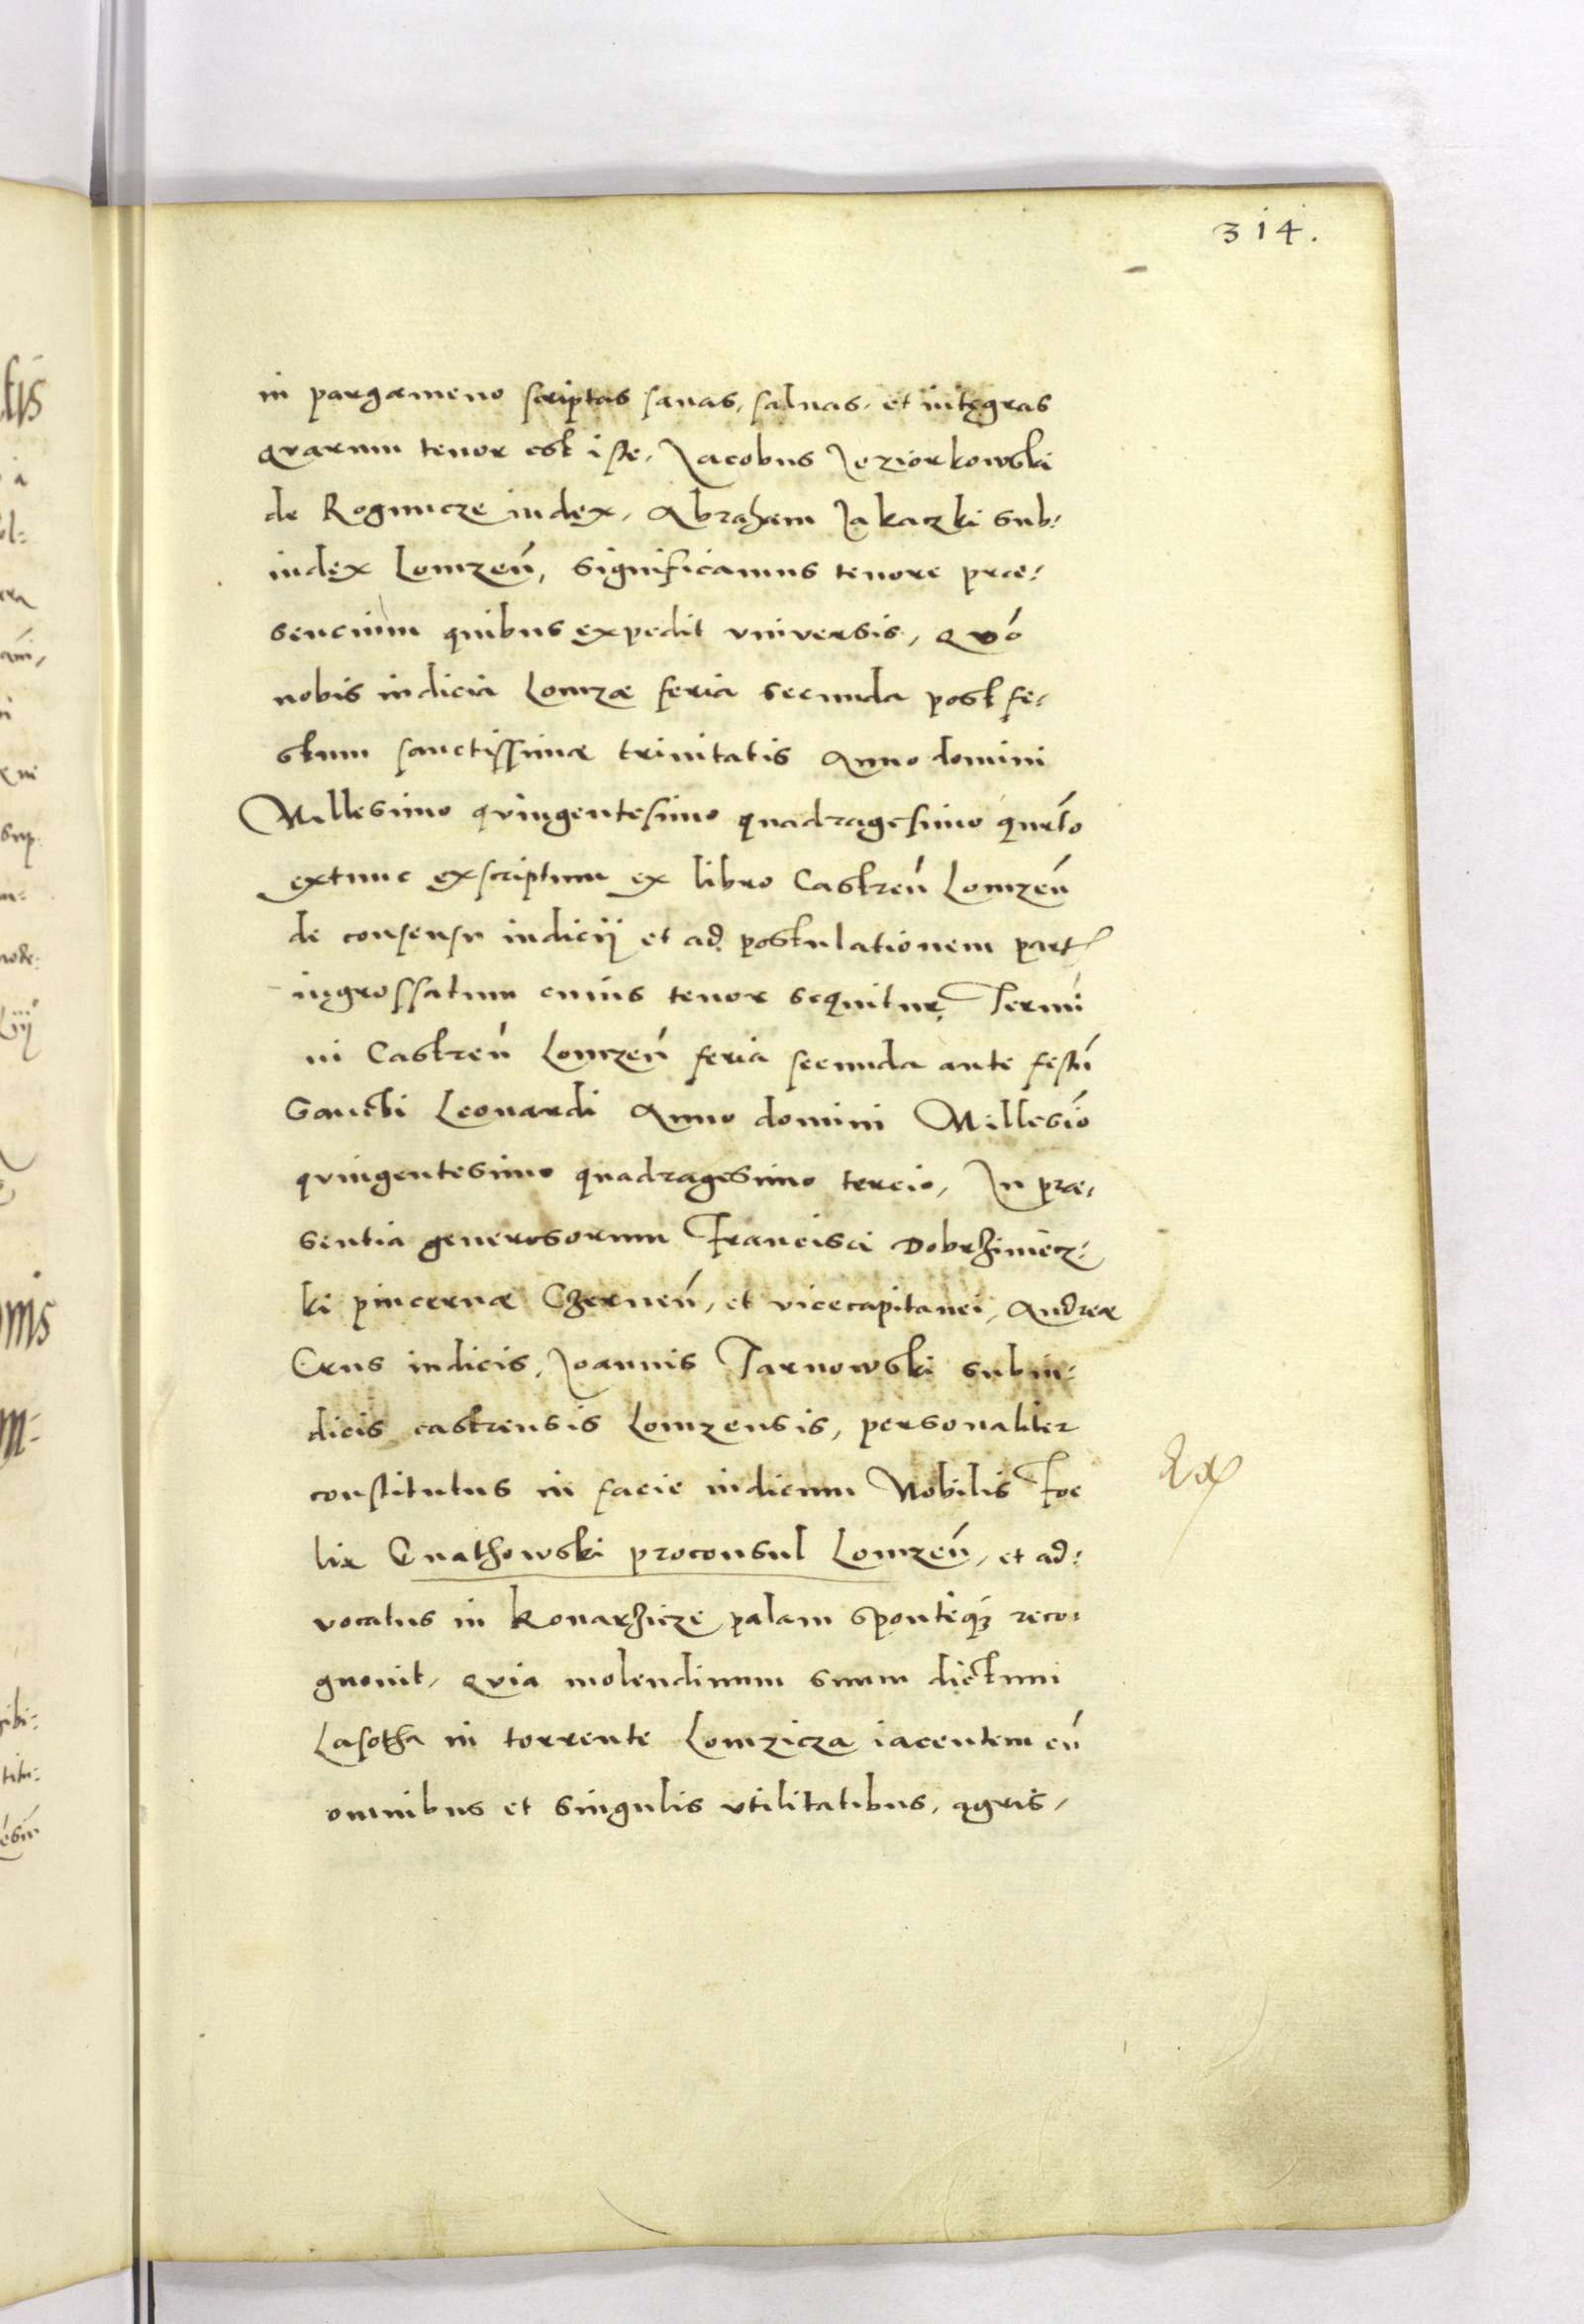 314.
in pargameno scriptas sanas, saluas, et integras
quarum tenor est iste, Jacobus Jeziorkowski
de Roginicze iudex, Abraham Jakaczki sub:
iudex Lomzen̄, significamus tenore præ:
sencium quibus expedit vniversis, Quō
nobis iudicia Lomzæ feria secunda post fe:
stum sanctissimæ trinitatis Anno domini
Millesimo quingentesimo quadragesimo quarto
extunc exscriptum ex libro Castren̄ Lomzen̄
de consensu iudicij et ad postulationem part
ingrossatum cuius tenor sequitur, Termi
ni Castren̄ Lomzen̄ feria secunda ante festū
Sancti Leonardi Anno domini Millesiō
quingentesimo quadragesimo tercio, In præ:
sentia generosorum Francisci Dobrziniecz:
ki pincernæ Czernen̄, et vicecapitanei, Andreæ
Crus iudicis, Joannis Tarnowski subiu:
dicis castrensis Lomzensis, personaliter
constitutus in facie iudicum Nobilis Foe
lix Gnathowski proconsul Lomzen̄, et ad:
vocatus in Konarzicze palam sponteq́ reco:
gnouit, Quia molendinum suum dictum
Lasotha in torrente Lomzicza iacentem cū
omnibus et singulis vtilitatibus, agris,